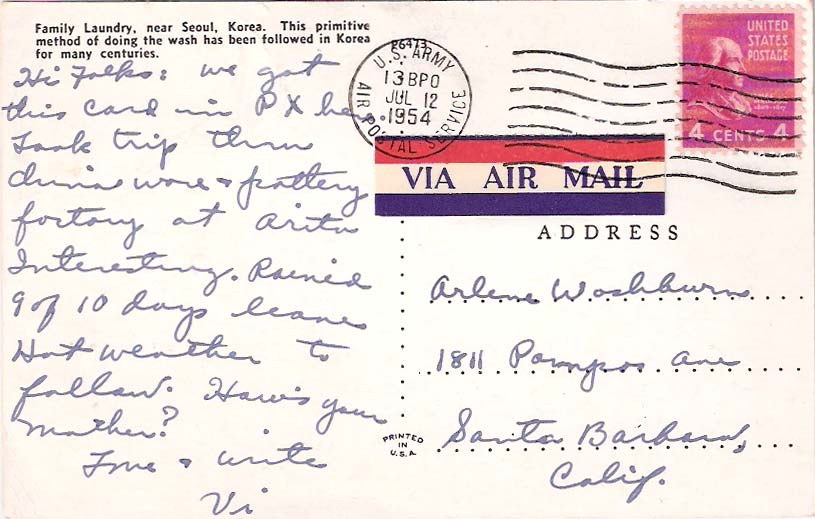 Family Laundry, near Seoul, Korea. This primitive
method of doing the wash has been followed in Korea
for many centuries.
Hi Folks: We got
this card in PX here.
Took trip thru
china ware & pottery
factory at Arita
Interesting. Rained
9 of 10 days leave
Hot weather to
follow. How's your
mother?
Love & write
Vi
U.S. ARMY
13 BPO
JUL 12
1954
AIR POSTAL SERVICE
UNITED
STATES
POSTAGE
4 CENTS 4
VIA AIR MAIL
ADDRESS
Arlene Washburn
1811 Ave
Santa Barbara,
Calif.
PRINTED
IN
U.S.A.